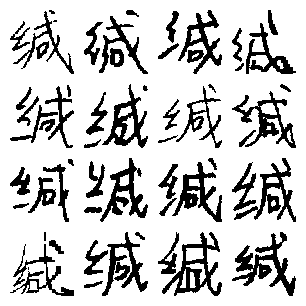 缄缄缄缄
缄缄缄缄
缄缄缄缄
缄缄缄缄